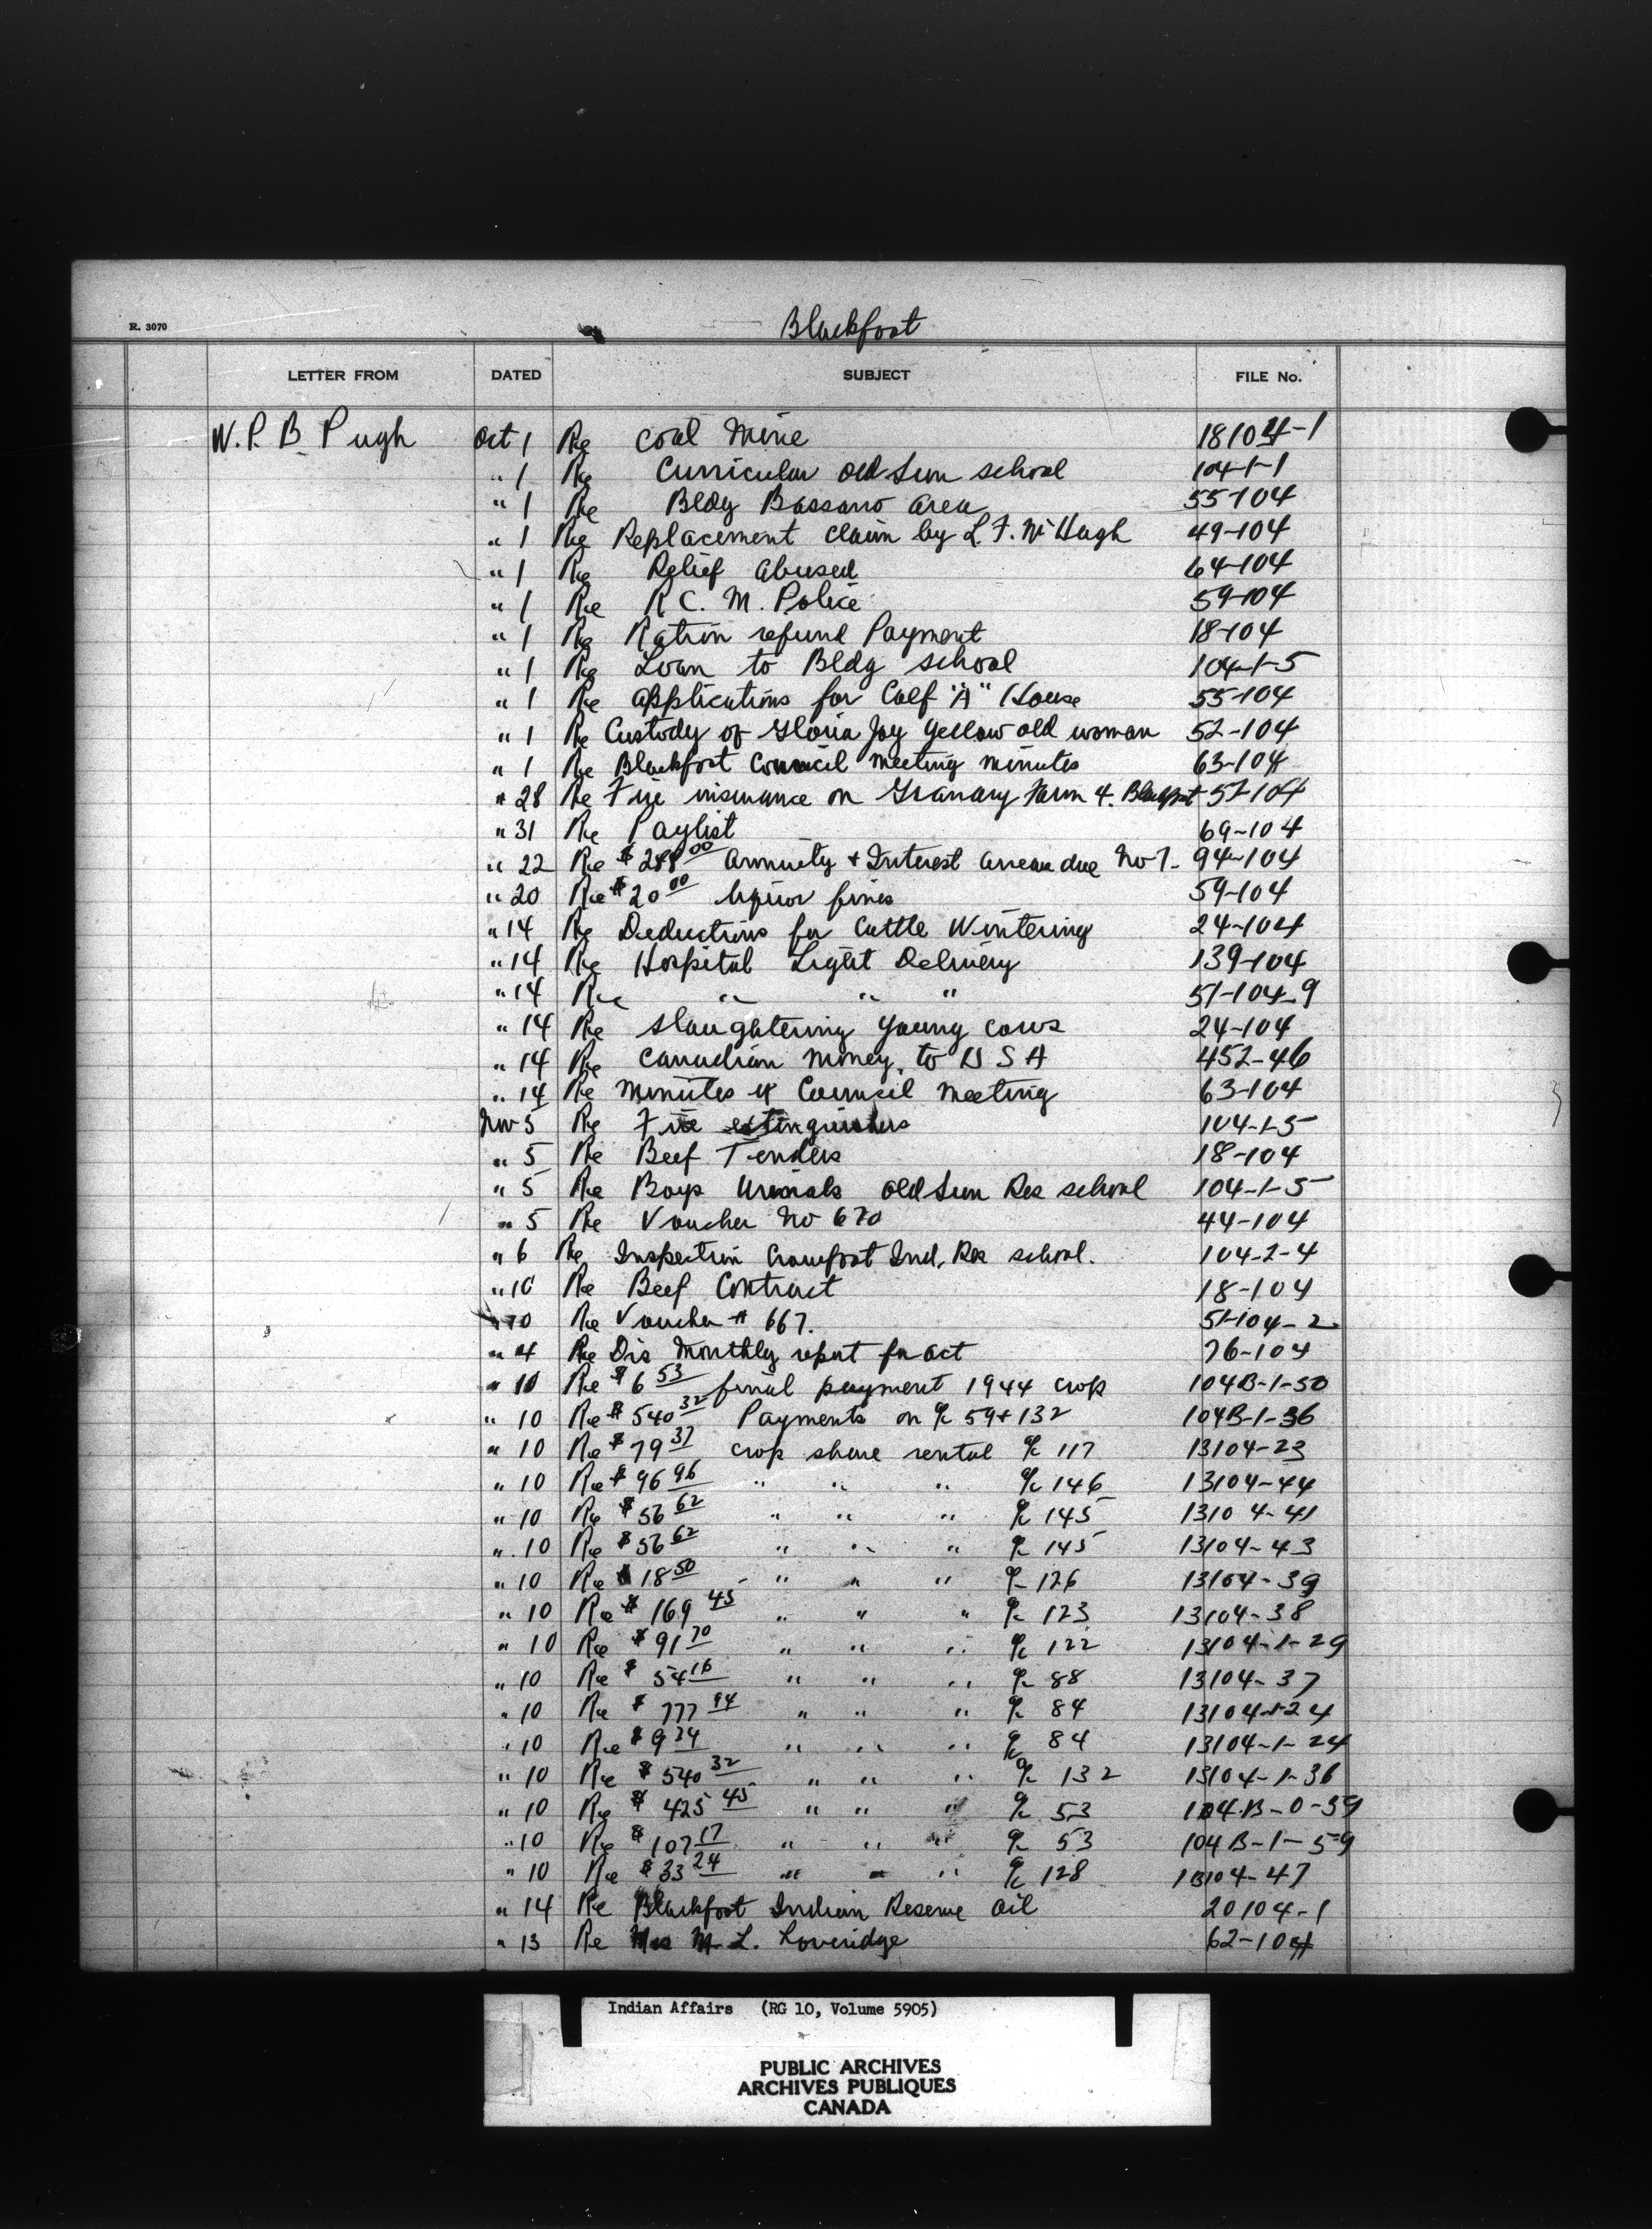 R. 3070
Blackfoot
LETTER FROM DATED SUBJECT FILE No.
W. P. B. Pugh Oct 1 Re Coal Mine 18104-1
" 1 Re Curricular Old Sun school 104-1-1
" 1 Re Bldg Bassano area 55-104
" 1 Re Replacement claim by L. F. McHugh 49-104
" 1 Re Relief abused 64-104
" 1 Re R C. M. Police 59-104
" 1 Re Ration refund Payment 18-104
" 1 Re Loan to Bldg school 104-1-5
" 1 Re applications for Calf "A" House 55-104
" 1 Re Custody of Gloria Joy Yellow old woman 52-104
" 1 Re Blackfoot Council meeting minutes 63-104
" 28 Re Fire insurance on Granary Farm 4. Blackfoot 57-104
" 31 Re Paylist 69-104
" 22 Re $ 288 00 annuity + Interest arrear due No 7- 94-104
" 20 Re $ 20 00 liquor fines 59-104
" 14 Re Deductions for Cattle Wintering 24-104
" 14 Re Hospital Light Delivery 139-104
" 14 Re " " " 51-104-9
" 14 Re slaughtering young cows 24-104
" 14 Re Canadian money to U S A 452-46
" 14 Re minutes of Council meeting 63-104
Nov 5 Re Fire extinguishers 104-1-5
" 5 Re Beef Tenders 18-104
" 5 Re Boys Urinals Old Sun Res school 104-1-5
" 5 Re Voucher No 670 44-104
" 6 Re Inspection Crowfoot Ind. Res school. 104-2-4
" 10 Re Beef Contract 18-104
" 10 Re Voucher # 667. 51-104-2
" 4 Re Dis Monthly report for Oct 76-104
" 10 Re $ 6 53 final payment 1944 crop 104B-1-50
" 10 Re $ 540 32 Payments on % 59+132 104B-1-36
" 10 Re $ 79 37 crop share rental % 117 13104-23
" 10 Re $ 96 96 " " " % 146 13104-44
" 10 Re $ 56 62 " " " % 145 13104-41
" 10 Re $ 56 62 " " " % 145 13104-43
" 10 Re $ 18 50 " " " % 126 13104-39
" 10 Re $ 169 45 " " " % 123 13104-38
" 10 Re $ 91 70 " " " % 122 13104-1-29
" 10 Re $ 54 16 " " " % 88 13104-37
" 10 Re $ 777 94 " " " % 84 13104-1-24
" 10 Re $ 9 74 " " " % 84 13104-1-24
" 10 Re $ 540 32 " " " % 132 13104-1-36
" 10 Re $ 425 45 " " " % 53 104.B-0-59
" 10 Re $ 107 17 " " " % 53 104B-1-59
" 10 Re $ 33 24 " " " % 128 13104-47
" 14 Re Blackfoot Indian Reserve Oil 20104-1
" 13 Re Mrs M. L. Loveridge 62-104
Indian Affairs (RG 10, Volume 5905)
PUBLIC ARCHIVES
ARCHIVES PUBLIQUES
CANADA